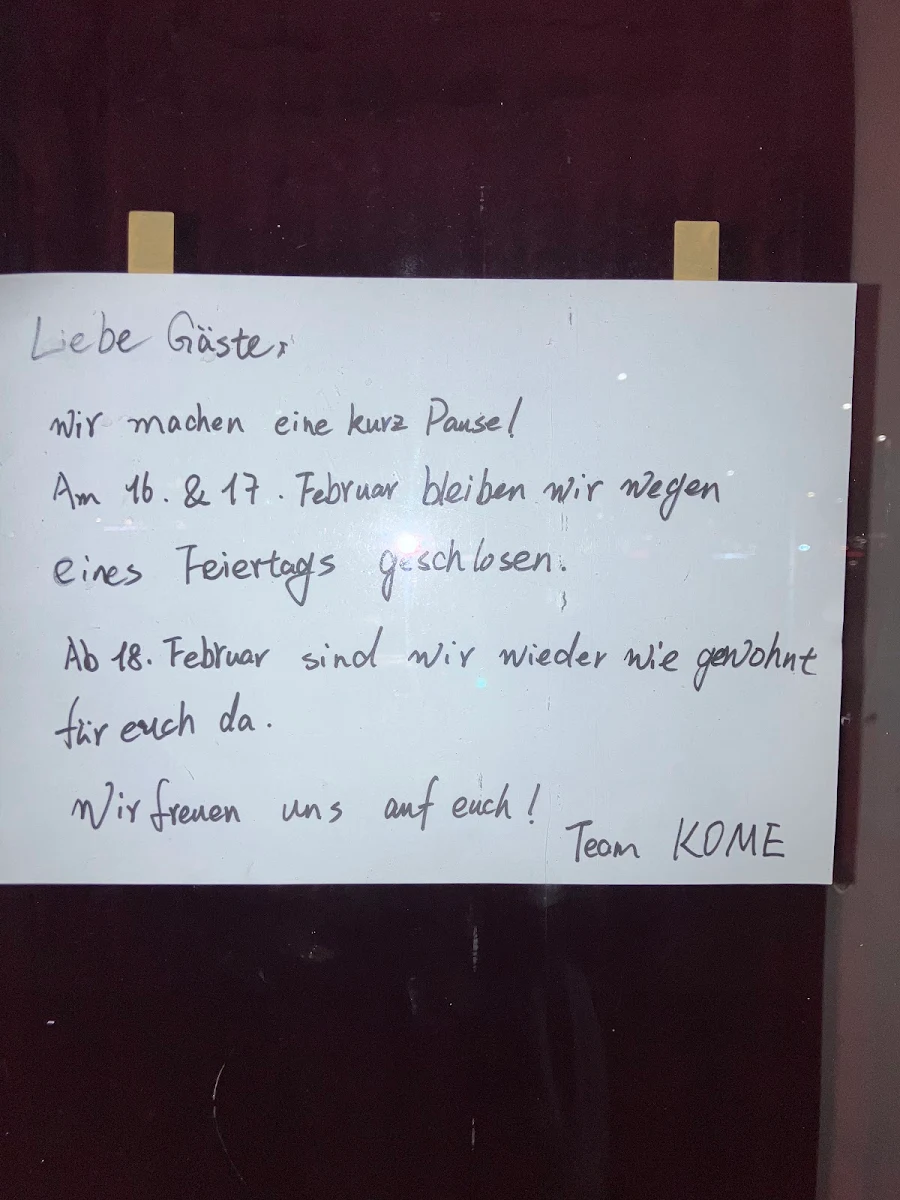 Liebe Gäste,
wir machen eine kurz Pause!
Am 16. & 17. Februar bleiben wir wegen
eines Feiertags geschlosen.
Ab 18. Februar sind wir wieder wie gewohnt
für euch da.
Wir freuen uns auf euch!
Team KOME